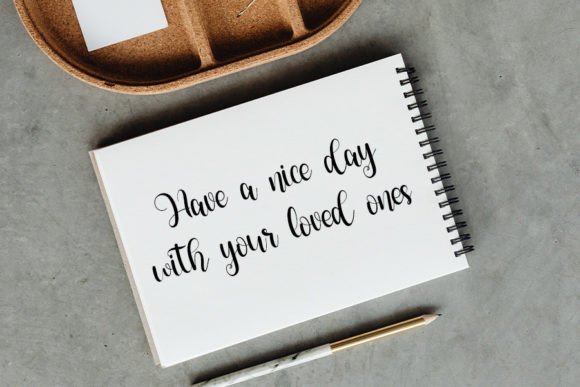 Have a nice day
with your loved ones